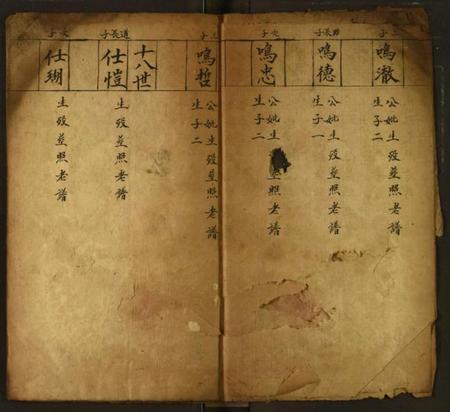 三子
鳴澈
公妣生歿塋照老譜
生子二
長子
鳴德
公妣生歿塋照老譜
生子一
次子
鳴忠
公妣生
塋照老譜
生子二
三子
鳴哲
公妣生歿塋照老譜
生子二
十八世
道長子
仕愷
生歿塋照老譜
次子
仕瑚
生歿塋照老譜